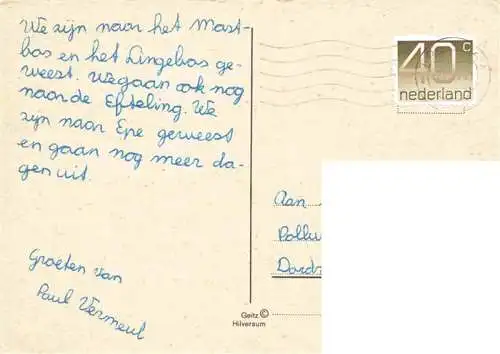 We zijn naar het Mast-
bos en het Lingebos ge-
weest. We gaan ook nog
naar de Efteling. We
zijn naar Epe geweest
en gaan nog meer da-
gen uit.
Groeten van
Paul Vermeul
40 c
nederland
Aan
Geitz ©
Hilversum